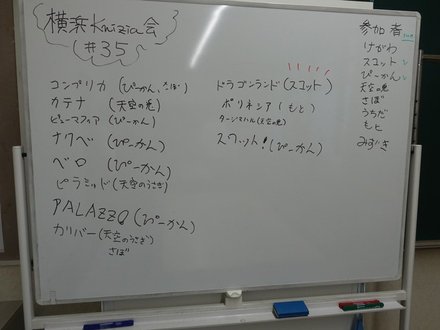 横浜Knizia会
#35
コンプリカ (ぴーかん、さぼ)
カテナ (天空の兎)
ヒューマスフィア (ぴーかん)
ナクベ (ぴーかん)
ベロ (ぴーかん)
ピラミッド (天空のうさぎ)
PALAZZO (ぴーかん)
カリバー (天空のうさぎ)
さぼ
ドラゴンランド (スコット)
ポリネシア (もと)
タージマハル (天空の兎)
スクット! (ぴーかん)
参加者
けがわ
スコット
ぴーかん
天空の兎
さぼ
うちだ
もと
みずき